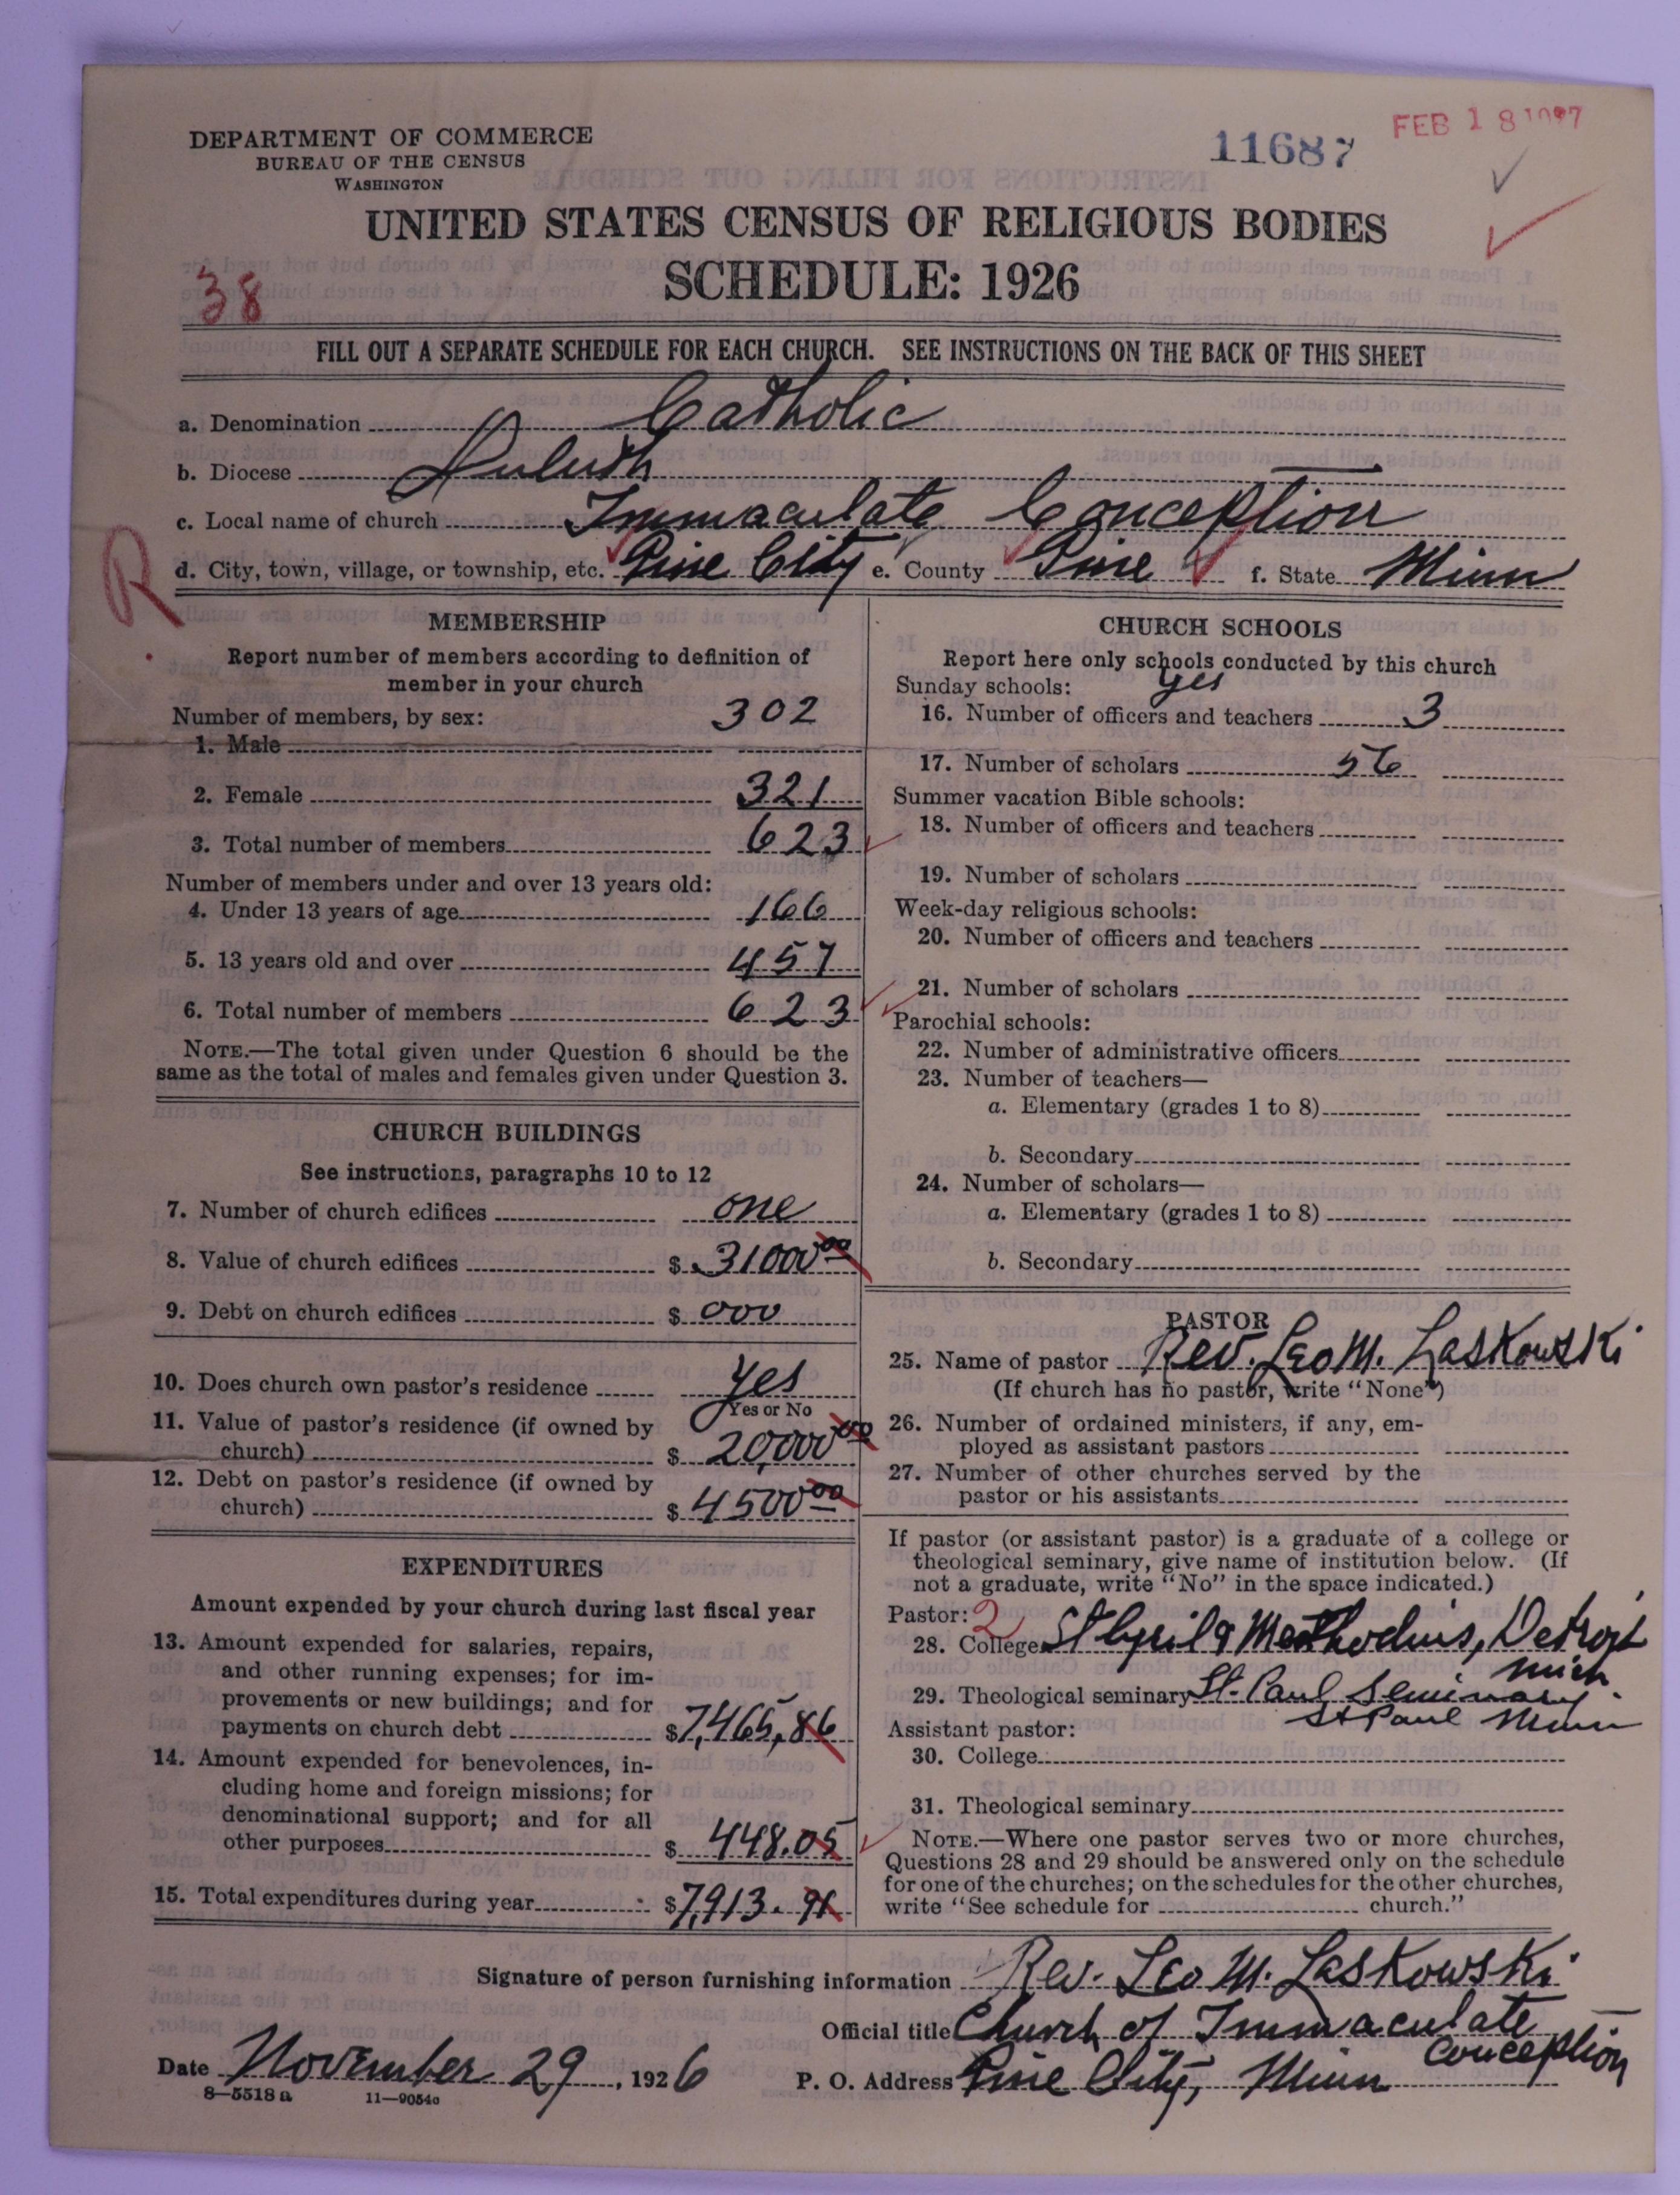 DEPARTMENT OF COMMERCE
BUREAU OF THE CENSUS
WASHINGTON
11687
FEB 18 1927
UNITED STATES CENSUS OF RELIGIOUS BODIES
SCHEDULE: 1926
38
FILL OUT A SEPARATE SCHEDULE FOR EACH CHURCH. SEE INSTRUCTIONS ON THE BACK OF THIS SHEET
a. Denomination Catholic
b. Diocese Duluth
c. Local name of church Immaculate Conception
R
d. City, town, village, or township, etc. Pine City e. County Pine f. State Minn
MEMBERSHIP
Report number of members according to definition of
member in your church
Number of members, by sex:
1. Male 302
2. Female 321
3. Total number of members 623
Number of members under and over 13 years old:
4. Under 13 years of age 166
5. 13 years old and over 457
6. Total number of members 623
NOTE.—The total given under Question 6 should be the
same as the total of males and females given under Question 3.
CHURCH BUILDINGS
See instructions, paragraphs 10 to 12
7. Number of church edifices one
8. Value of church edifices $ 31000 00
9. Debt on church edifices $ 000
10. Does church own pastor's residence yes
Yes or No
11. Value of pastor's residence (if owned by
church) $ 20,000 00
12. Debt on pastor's residence (if owned by
church) $ 4500 00
EXPENDITURES
Amount expended by your church during last fiscal year
13. Amount expended for salaries, repairs,
and other running expenses; for im-
provements or new buildings; and for
payments on church debt $ 7,465,86
14. Amount expended for benevolences, in-
cluding home and foreign missions; for
denominational support; and for all
other purposes $ 448.05
15. Total expenditures during year $ 7,913.91
CHURCH SCHOOLS
Report here only schools conducted by this church
Sunday schools: yes
16. Number of officers and teachers 3
17. Number of scholars 56
Summer vacation Bible schools:
18. Number of officers and teachers
19. Number of scholars
Week-day religious schools:
20. Number of officers and teachers
21. Number of scholars
Parochial schools:
22. Number of administrative officers
23. Number of teachers—
a. Elementary (grades 1 to 8)
b. Secondary
24. Number of scholars—
a. Elementary (grades 1 to 8)
b. Secondary
PASTOR
25. Name of pastor Rev. Leo M. Laskowski
(If church has no pastor, write "None")
26. Number of ordained ministers, if any, em-
ployed as assistant pastors
27. Number of other churches served by the
pastor or his assistants
If pastor (or assistant pastor) is a graduate of a college or
theological seminary, give name of institution below. (If
not a graduate, write "No" in the space indicated.)
Pastor: 2
28. College St Cyril & Methodius, Detroit
Mich
29. Theological seminary St. Paul Seminary
St Paul Minn
Assistant pastor:
30. College
31. Theological seminary
NOTE.—Where one pastor serves two or more churches,
Questions 28 and 29 should be answered only on the schedule
for one of the churches; on the schedules for the other churches,
write "See schedule for church."
Signature of person furnishing information Rev. Leo M. Laskowski
Official title Church of Immaculate
Conception
Date November 29, 1926
P. O. Address Pine City, Minn
8—5518 a 11—9054c